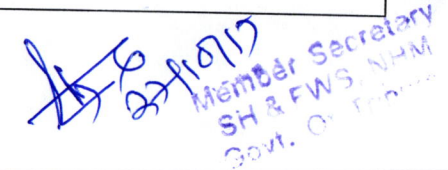 27/10/17
Member Secretary
SH & FWS, NHM
Govt. Of Tripura